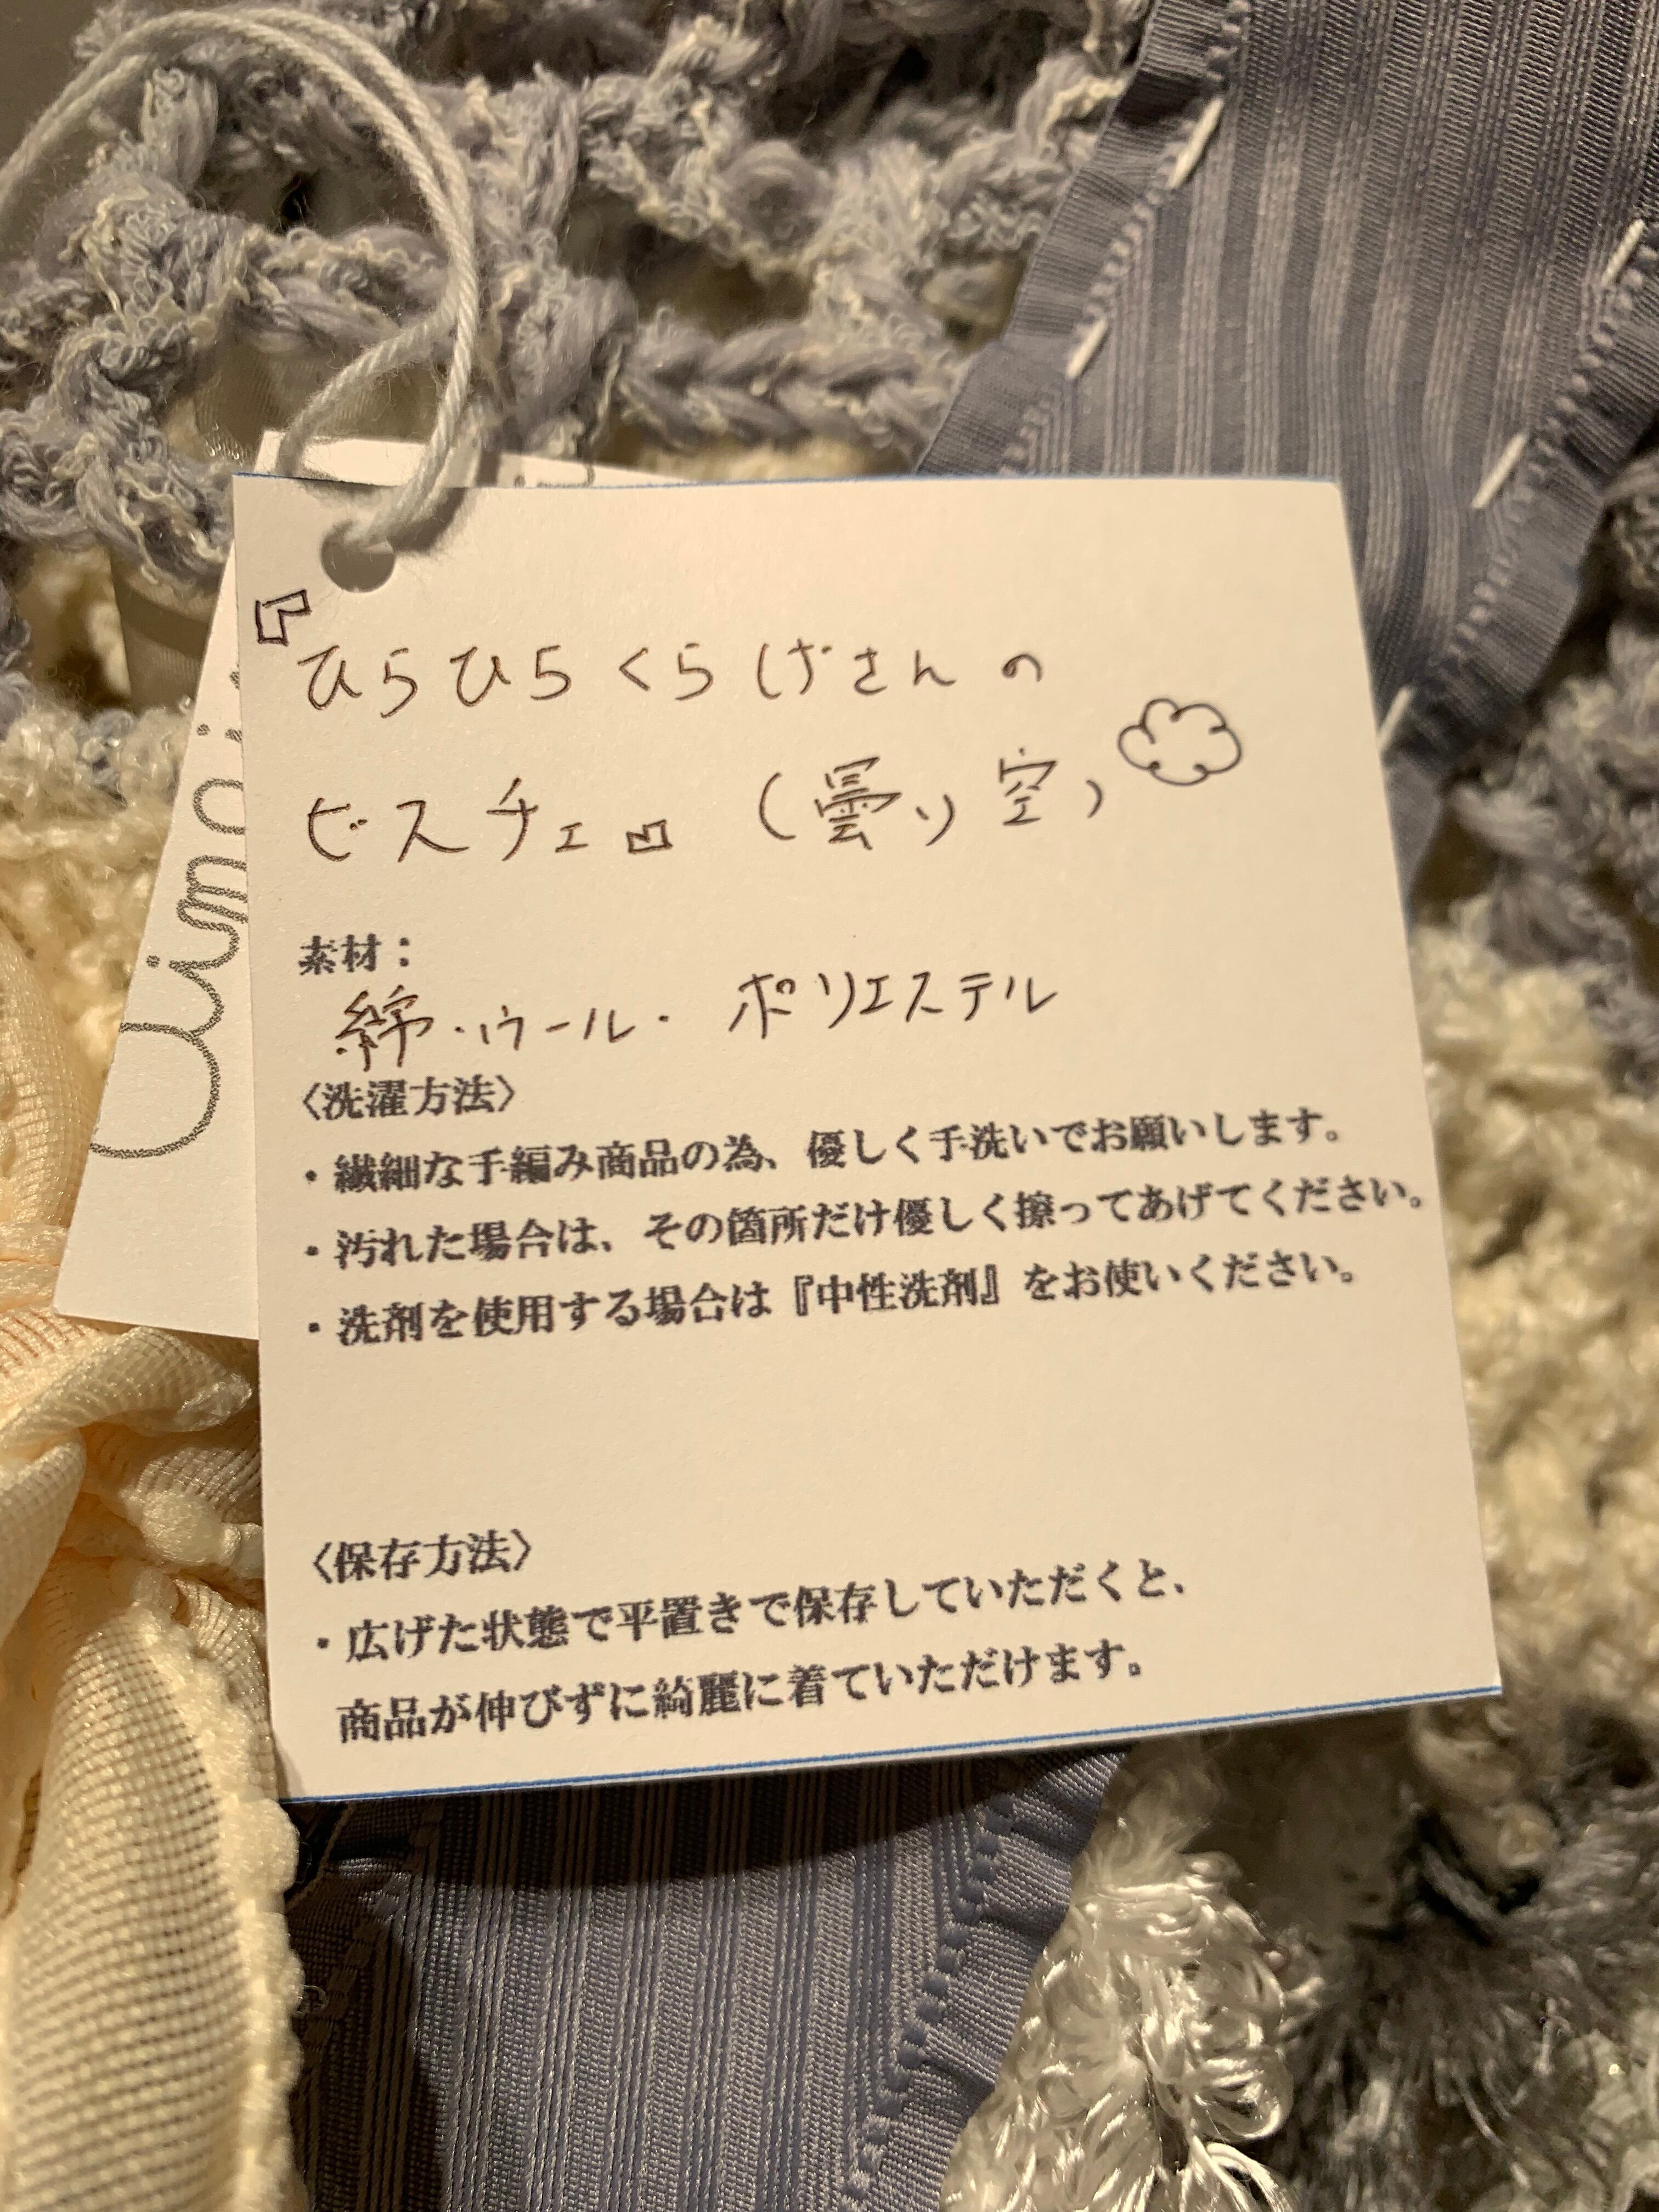 『ひらひらくらげさんの
ビスチェ』（曇り空）
素材：
綿・ウール・ポリエステル
〈洗濯方法〉
・繊細な手編み商品の為、優しく手洗いでお願いします。
・汚れた場合は、その箇所だけ優しく擦ってあげてください。
・洗剤を使用する場合は『中性洗剤』をお使いください。
〈保存方法〉
・広げた状態で平置きで保存していただくと、
商品が伸びずに綺麗に着ていただけます。